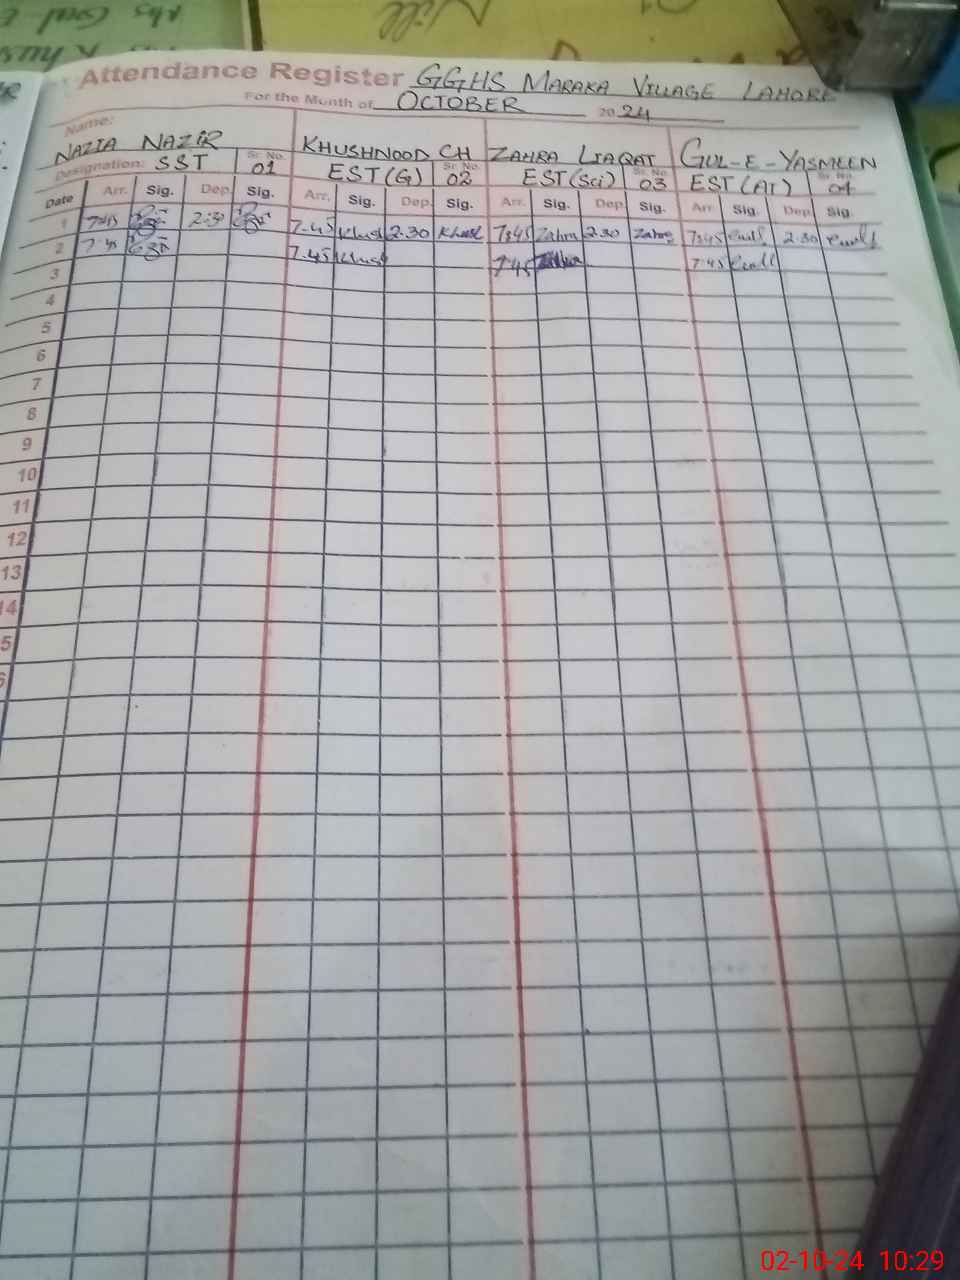 Nill
Attendance Register GGHS MARAKA VILLAGE LAHORE
For the Month of OCTOBER 2024
Name:
NAZIA NAZIR KHUSHNOOD CH ZAHRA LIAQAT GUL-E-YASMEEN
Designation: SST Sr. No. 01 EST(G) Sr. No. 02 EST(Sci) Sr. No. 03 EST(AT) Sr. No. 04
Date Arr. Sig. Dep. Sig. Arr. Sig. Dep. Sig. Arr. Sig. Dep. Sig. Arr. Sig. Dep. Sig.
1 7:45 2:30 7.45 Khush 2.30 Khush 7:45 Zahra 2:30 Zahra 7:45 2:30
2 7:45 7.45 Khush 7:45 7:45
3
4
5
6
7
8
9
10
11
12
13
14
5
02-10-24 10:29